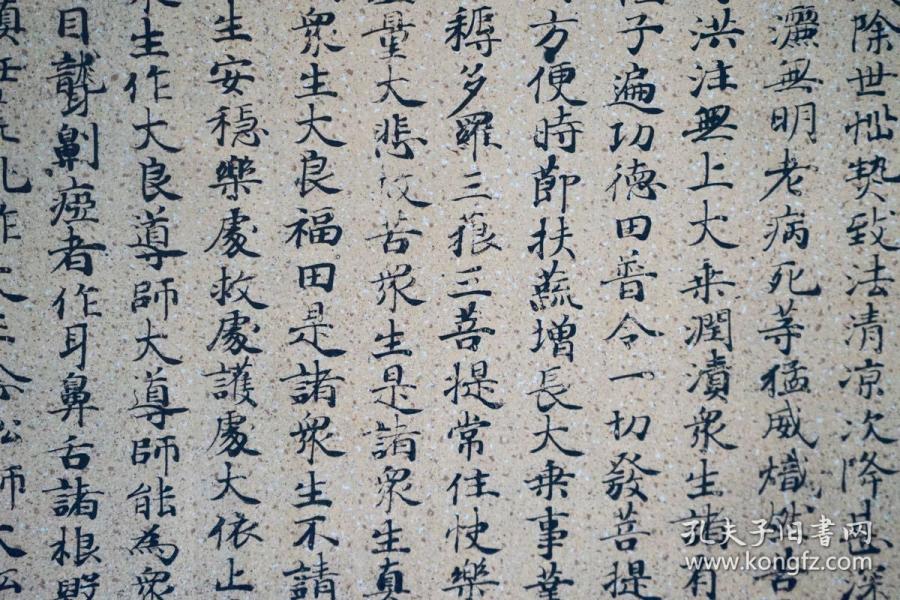 除世惱熱致法清涼次降甚深
灑無明老病死等猛威熾然苦
洪注無上大乘潤漬衆生諸有
子遍功德田普令一切發菩提
方便時節扶蔬增長大乗事業
耨多羅三藐三菩提常住快樂
量大悲救苦衆生是諸衆生真
衆生大良福田是諸衆生不請
生安穩樂處救處護處大依止
生作大良導師大導師能為衆
目聾劓瘂者作耳鼻舌諸根毀
作大正念船師大船
孔夫子旧书网
www.kongfz.com